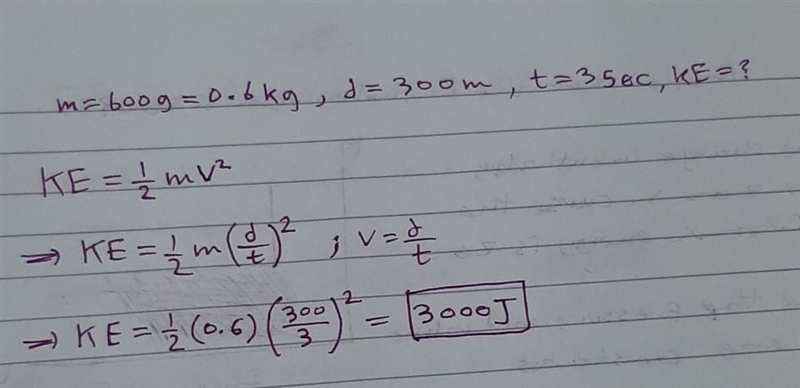 m=600g=0.6kg, d=300m, t=3sec, KE=?
KE = 1/2 mv²
⇒ KE = 1/2 m(d/t)² ; v = d/t
⇒ KE = 1/2 (0.6) (300/3)² = 3000J